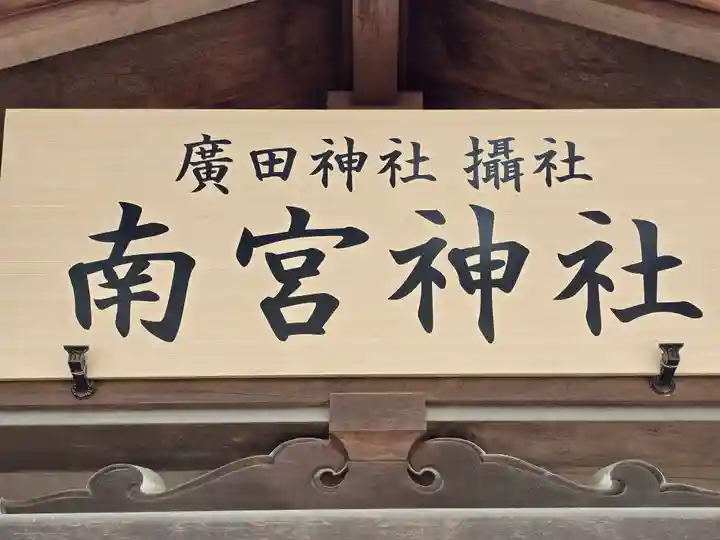 廣田神社 攝社
南宮神社